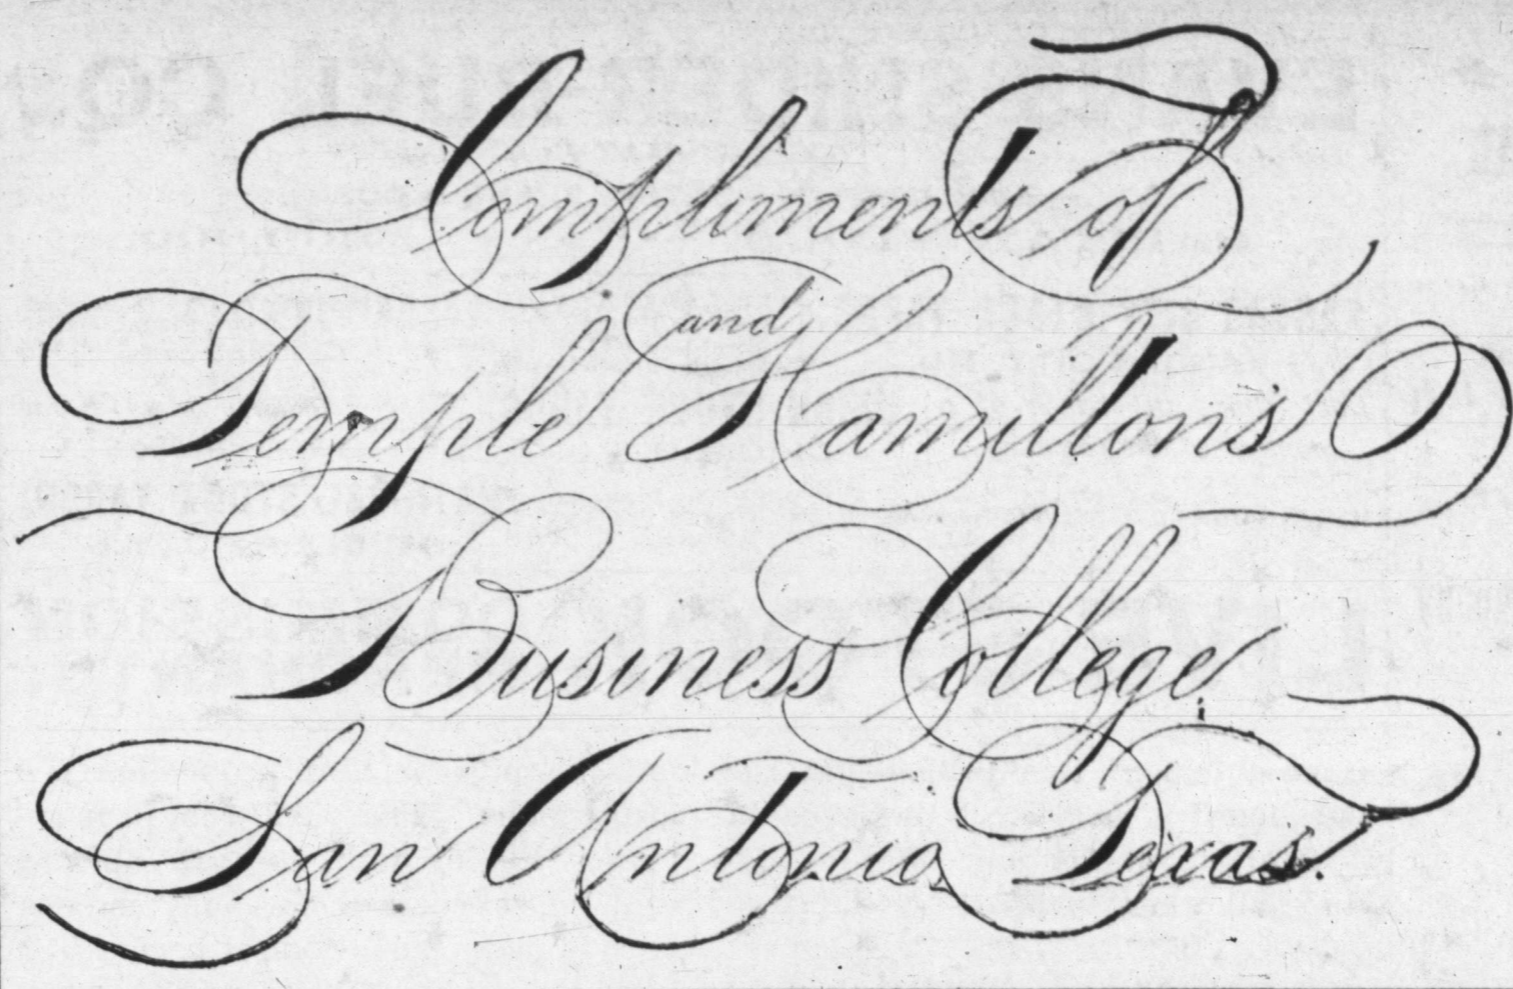 Compliments of
Temple and Hamilton's
Business College,
San Antonio, Texas.